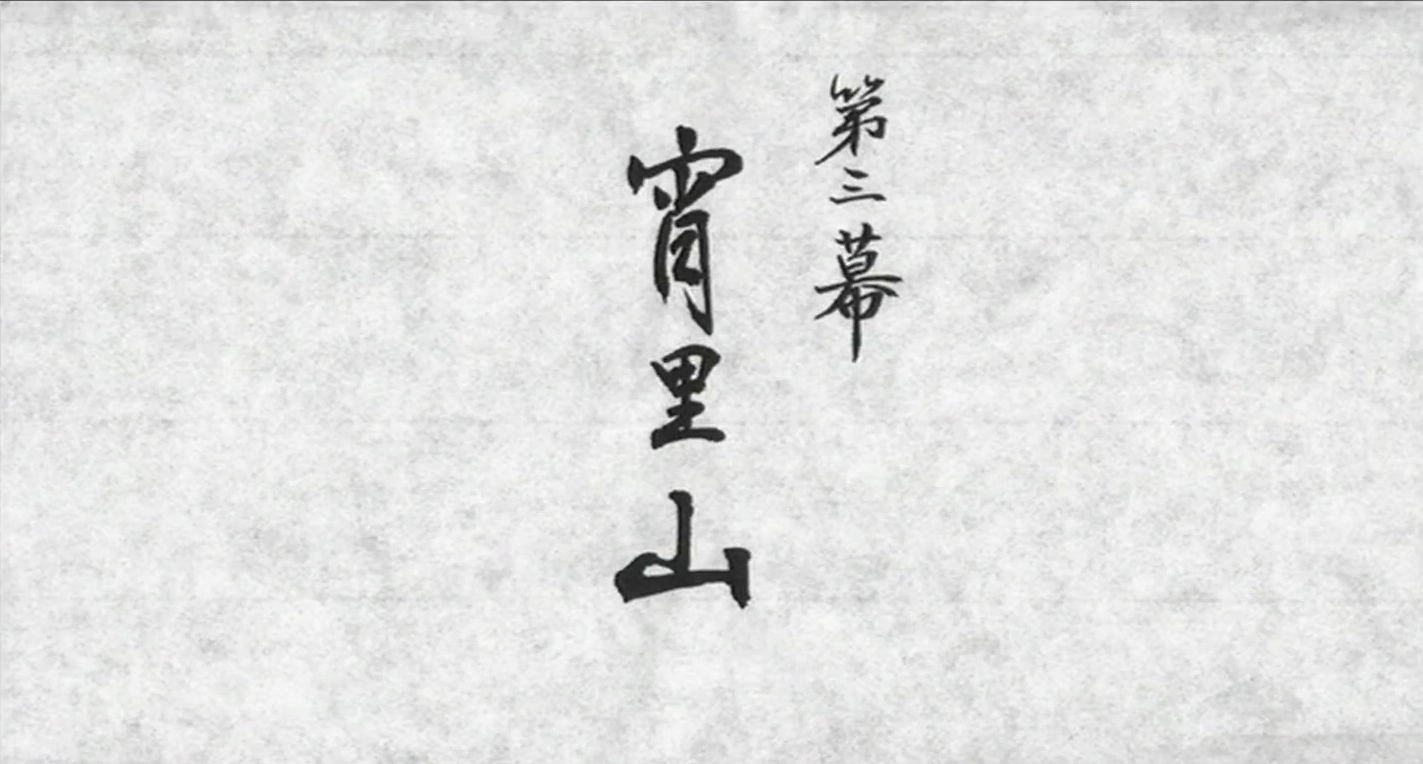 第三幕
宵里山